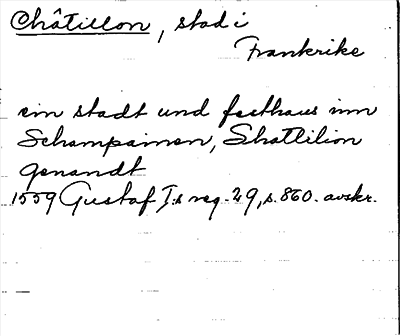 Châtillon, stad i
Frankrike
ein stadt und festhaus inn
Schampainen, Shattilion
genandt
1559 Gustaf I:s reg. 29, s. 860. avskr.